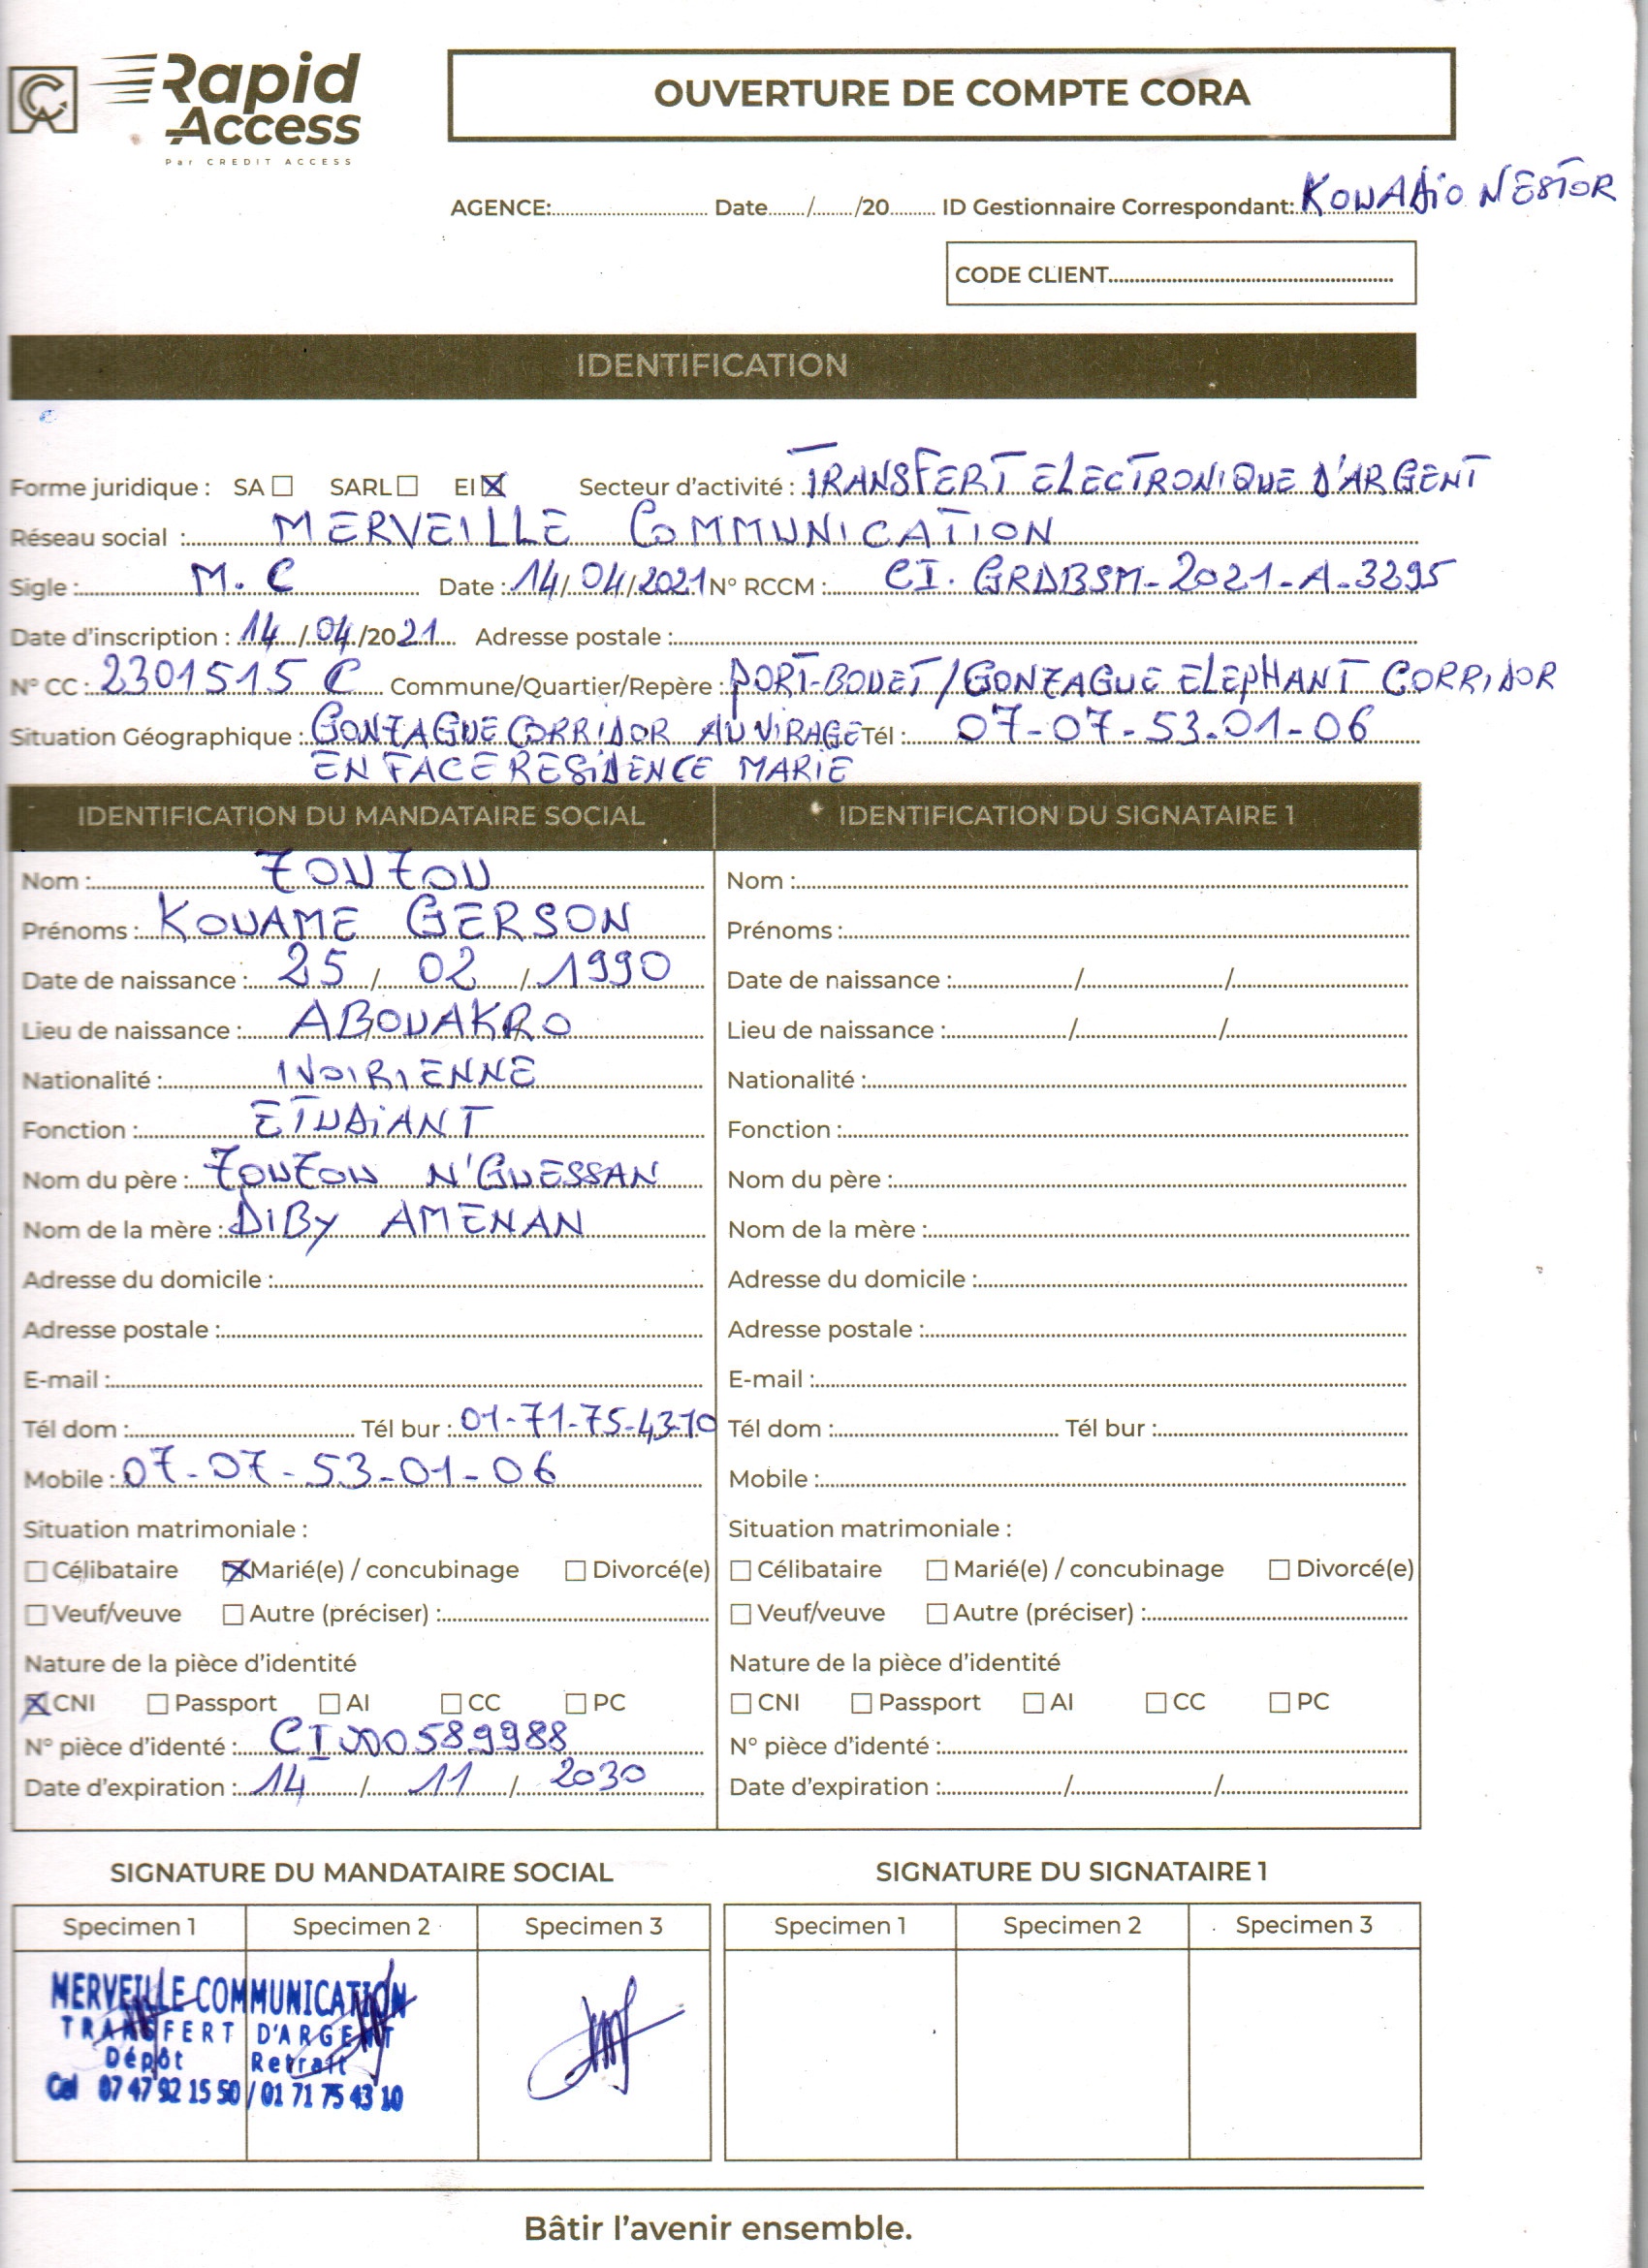 Rapid Access
Par CREDIT ACCESS
OUVERTURE DE COMPTE CORA
AGENCE:.......... Date....../....../20...... ID Gestionnaire Correspondant: KOUADIO NESTOR
CODE CLIENT..........
IDENTIFICATION
Forme juridique : SA ☐ SARL ☐ EI ☒ Secteur d'activité : TRANSFERT ELECTRONIQUE D'ARGENT
Réseau social : MERVEILLE COMMUNICATION
Sigle : M. C Date : 14/04/2021 N° RCCM : CI. GRDBSM-2021-A-3295
Date d'inscription : 14/04/2021 Adresse postale :
N° CC : 2301515 C Commune/Quartier/Repère : PORT-BOUET/GONZAGUE ELEPHANT CORRIDOR
Situation Géographique : GONZAGUE CORRIDOR AU VIRAGE Tél : 07-07-53-01-06
EN FACE RESIDENCE MARIE
IDENTIFICATION DU MANDATAIRE SOCIAL
Nom : ZOUZOU
Prénoms : KOUAME GERSON
Date de naissance : 25 / 02 / 1990
Lieu de naissance : ABOUAKRO
Nationalité : IVOIRIENNE
Fonction : ETUDIANT
Nom du père : ZOUZOU N'GUESSAN
Nom de la mère : DIBY AMENAN
Adresse du domicile :
Adresse postale :
E-mail :
Tél dom : Tél bur : 01-71-75-43-10
Mobile : 07-07-53-01-06
Situation matrimoniale :
☐ Célibataire ☒ Marié(e) / concubinage ☐ Divorcé(e)
☐ Veuf/veuve ☐ Autre (préciser) :
Nature de la pièce d'identité
☒ CNI ☐ Passport ☐ AI ☐ CC ☐ PC
N° pièce d'identé : CI000589988
Date d'expiration : 14 / 11 / 2030
IDENTIFICATION DU SIGNATAIRE 1
Nom :
Prénoms :
Date de naissance : / /
Lieu de naissance : / /
Nationalité :
Fonction :
Nom du père :
Nom de la mère :
Adresse du domicile :
Adresse postale :
E-mail :
Tél dom : Tél bur :
Mobile :
Situation matrimoniale :
☐ Célibataire ☐ Marié(e) / concubinage ☐ Divorcé(e)
☐ Veuf/veuve ☐ Autre (préciser) :
Nature de la pièce d'identité
☐ CNI ☐ Passport ☐ AI ☐ CC ☐ PC
N° pièce d'identé :
Date d'expiration : / /
SIGNATURE DU MANDATAIRE SOCIAL
Specimen 1 Specimen 2 Specimen 3
MERVEILLE COMMUNICATION
TRANSFERT D'ARGENT
Dépôt Retrait
Cel 07 47 92 15 50 / 01 71 75 43 10
SIGNATURE DU SIGNATAIRE 1
Specimen 1 Specimen 2 Specimen 3
Bâtir l'avenir ensemble.